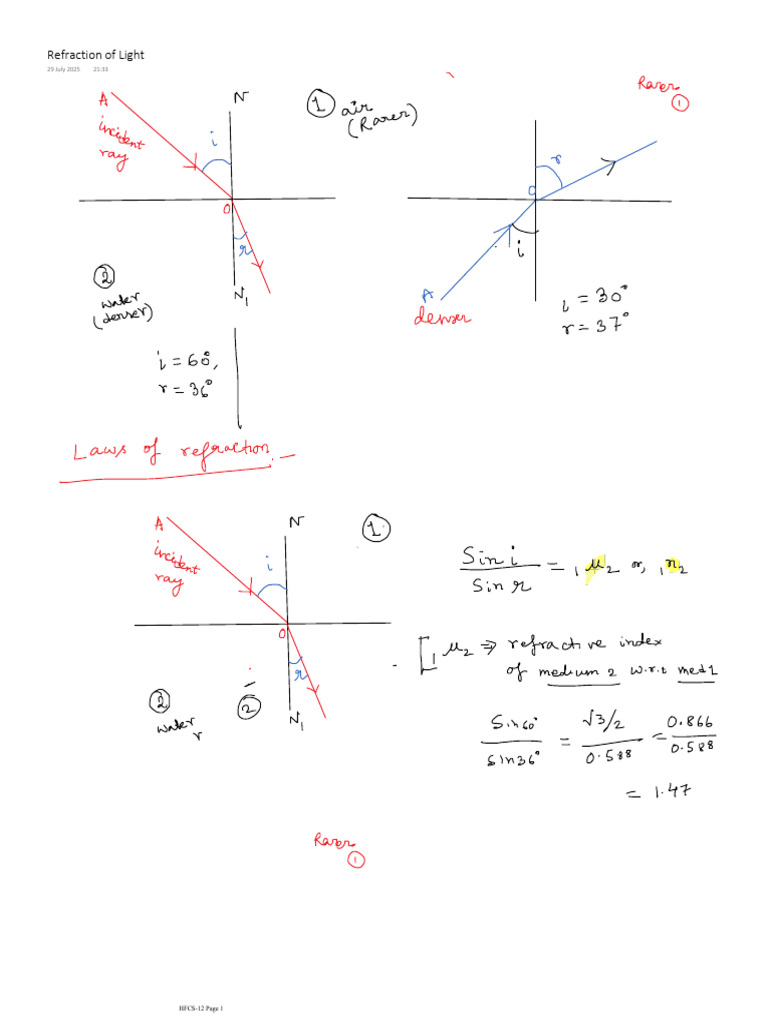 Refraction of Light
29 July 2025 21:33
A
incident
ray
i
N
O
r
N₁
① air
(Rarer)
② water
(denser)
i = 60°,
r = 36°
Rarer
①
r
O
i
A
denser
i = 30°
r = 37°
Laws of refraction :-
A
incident
ray
i
N
①
O
r
N₁
② water
r
②
Sin i / Sin r = ₁μ₂ or, ₁n₂
[₁μ₂ ⇒ refractive index
of medium 2 w.r.t med 1
Sin 60° / Sin 36° = √3/2 / 0.588 = 0.866 / 0.588
= 1.47
Rarer
①
HFCS-12 Page 1